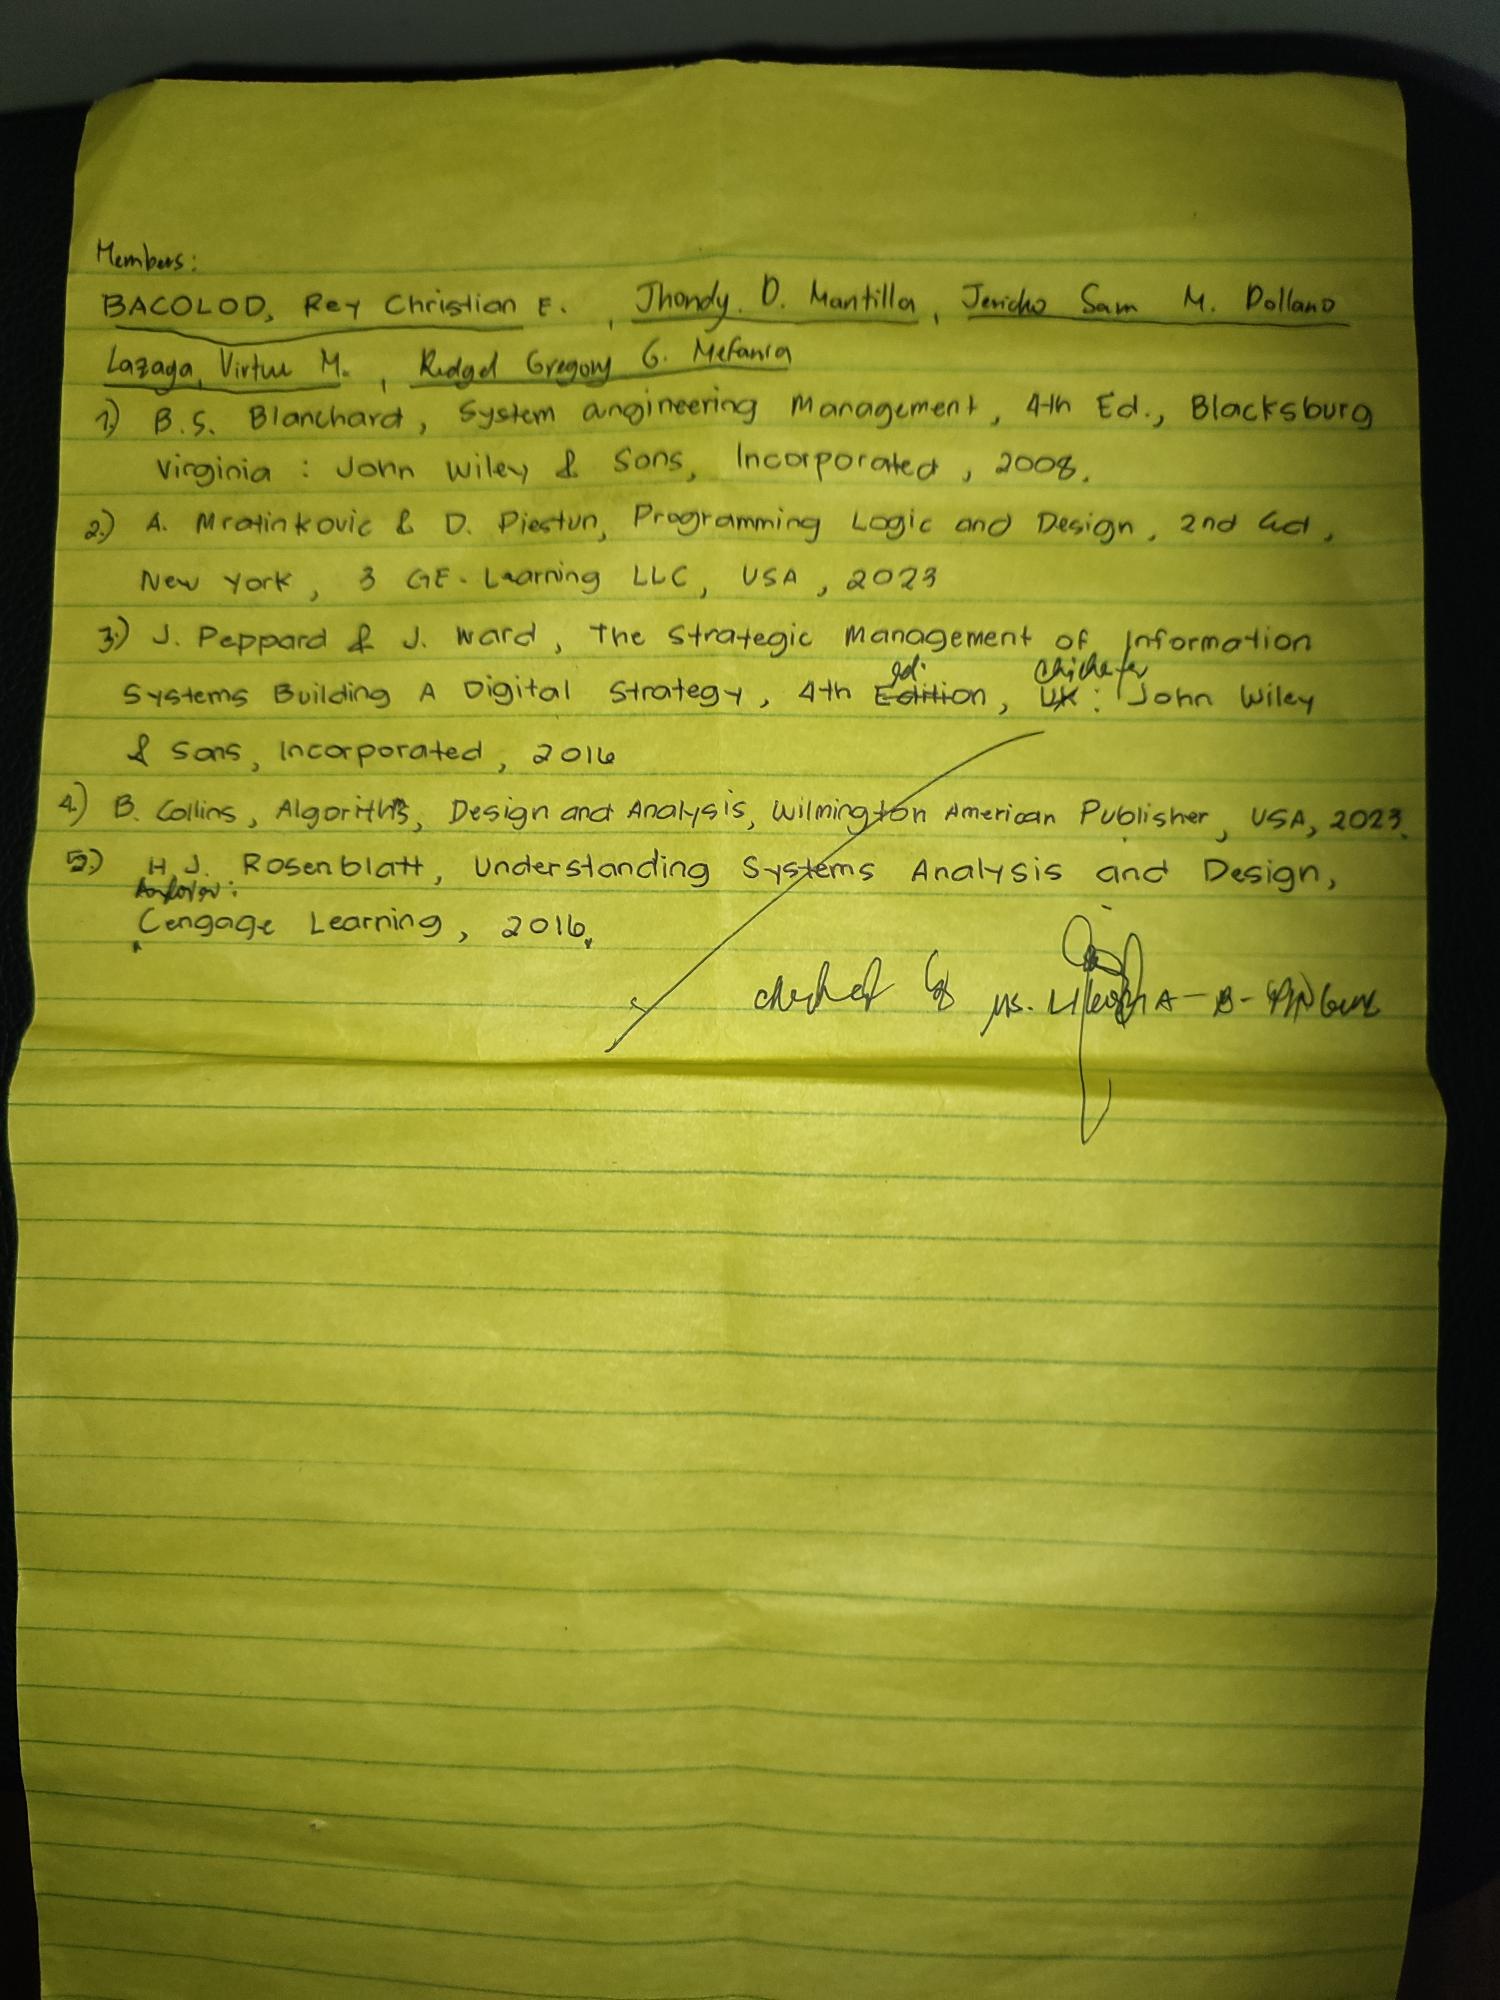 Members:
BACOLOD, Rey Christian E. , Jhondy. D. Mantilla, Jericho Sam M. Dollano
Lazaga, Virtue M. , Ridgel Gregory G. Mefania
1) B.S. Blanchard, System angineering Management, 4th Ed., Blacksburg
Virginia : John Wiley & Sons, Incorporated, 2008.
2.) A. Mratinkovic & D. Piestun, Programming Logic and Design, 2nd Ed,
New York, 3 GE-Learning LLC, USA, 2023
3.) J. Peppard & J. Ward, The Strategic Management of Information
ed.
Systems Building A Digital Strategy, 4th Edition, UK: John Wiley
& Sons, Incorporated, 2016
4.) B. Collins, Algorithms, Design and Analysis, Wilmington American Publisher, USA, 2023.
5.) H J. Rosenblatt, Understanding Systems Analysis and Design,
Cengage Learning, 2016.
checked by Ms.